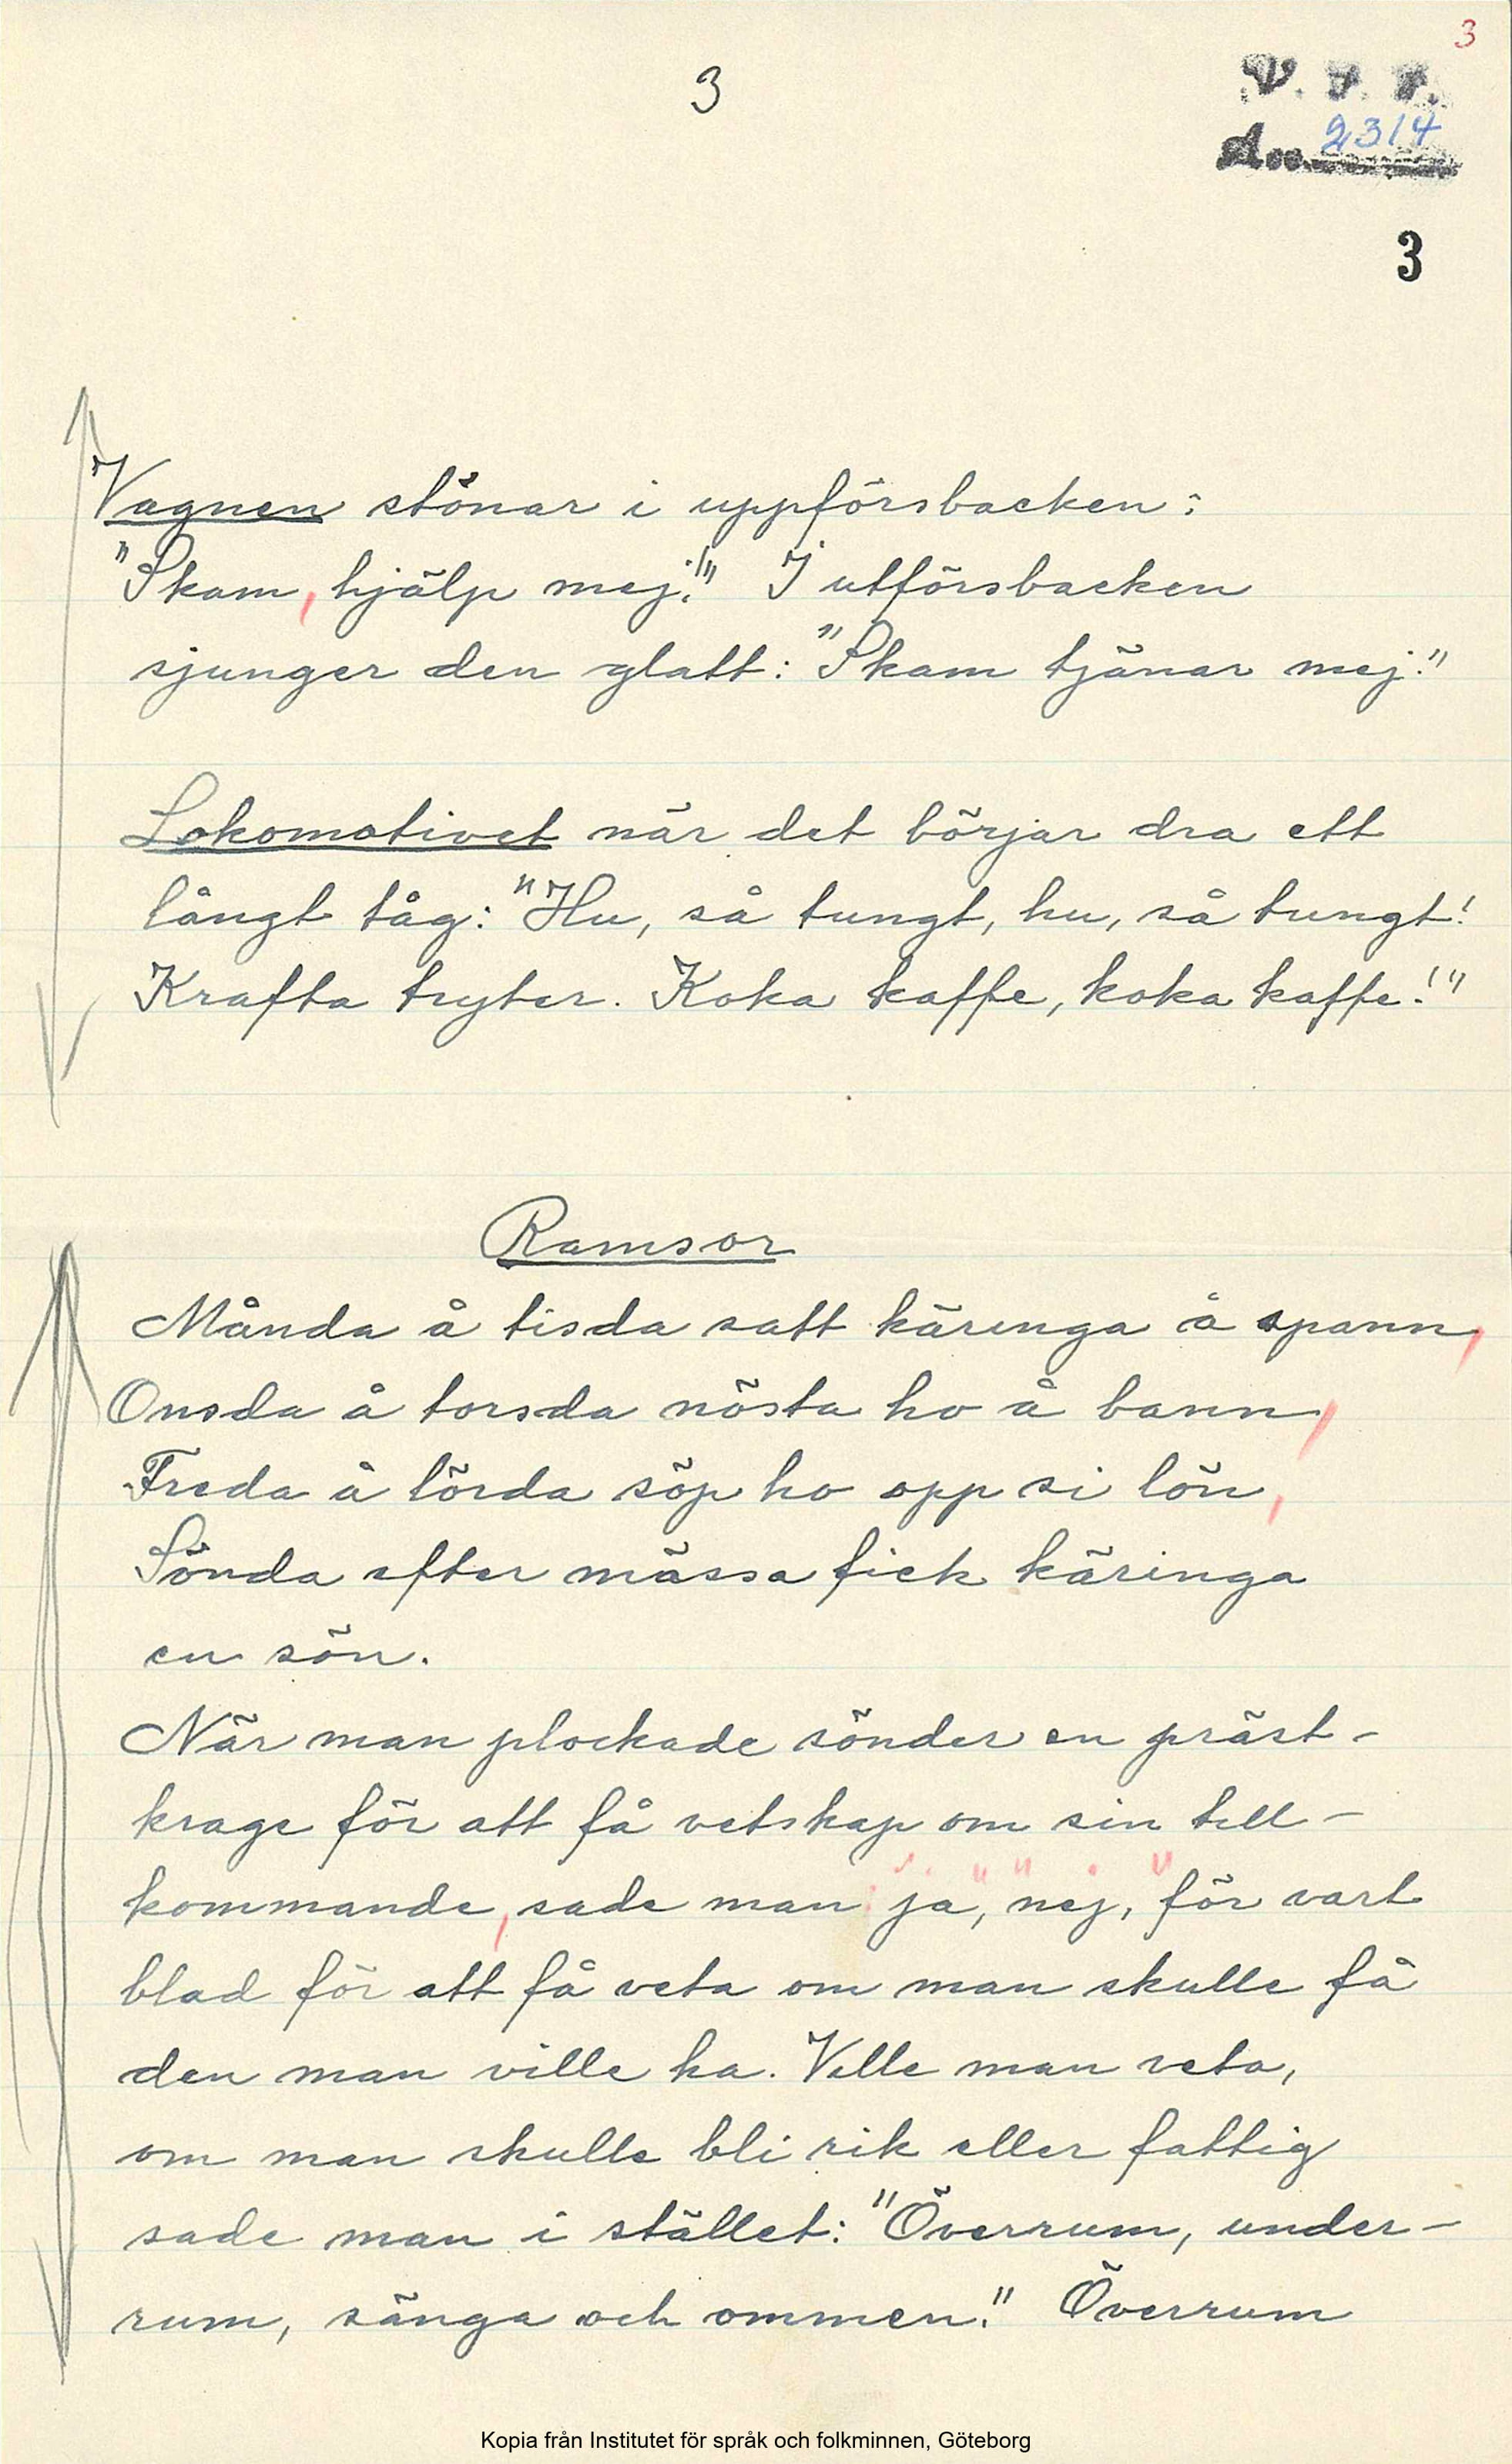 3
3
V. F. F.
Acc. 2314
3
Vagnen stönar i uppförsbacken:
"Skam, hjälp mej!" I utförsbacken
sjunger den glatt: "Skam tjänar mej."
Lokomotivet när det börjar dra ett
långt tåg: "Hu, så tungt, hu, så tungt!
Krafta tryter. Koka kaffe, koka kaffe!"
Ramsor
Månda å tisda satt käringa å spann,
Onsda å torsda nösta ho å bann,
Freda å lörda söp ho opp si lön,
Sönda efter mässa fick käringa
en sön.
När man plockade sönder en präst-
krage för att få vetskap om sin till-
kommande, sade man "ja", "nej", för vart
blad för att få veta om man skulle få
den man ville ha. Ville man veta,
om man skulle bli rik eller fattig
sade man i stället: "Överrum, under-
rum, sänga och ommen." Överrum
Kopia från Institutet för språk och folkminnen, Göteborg